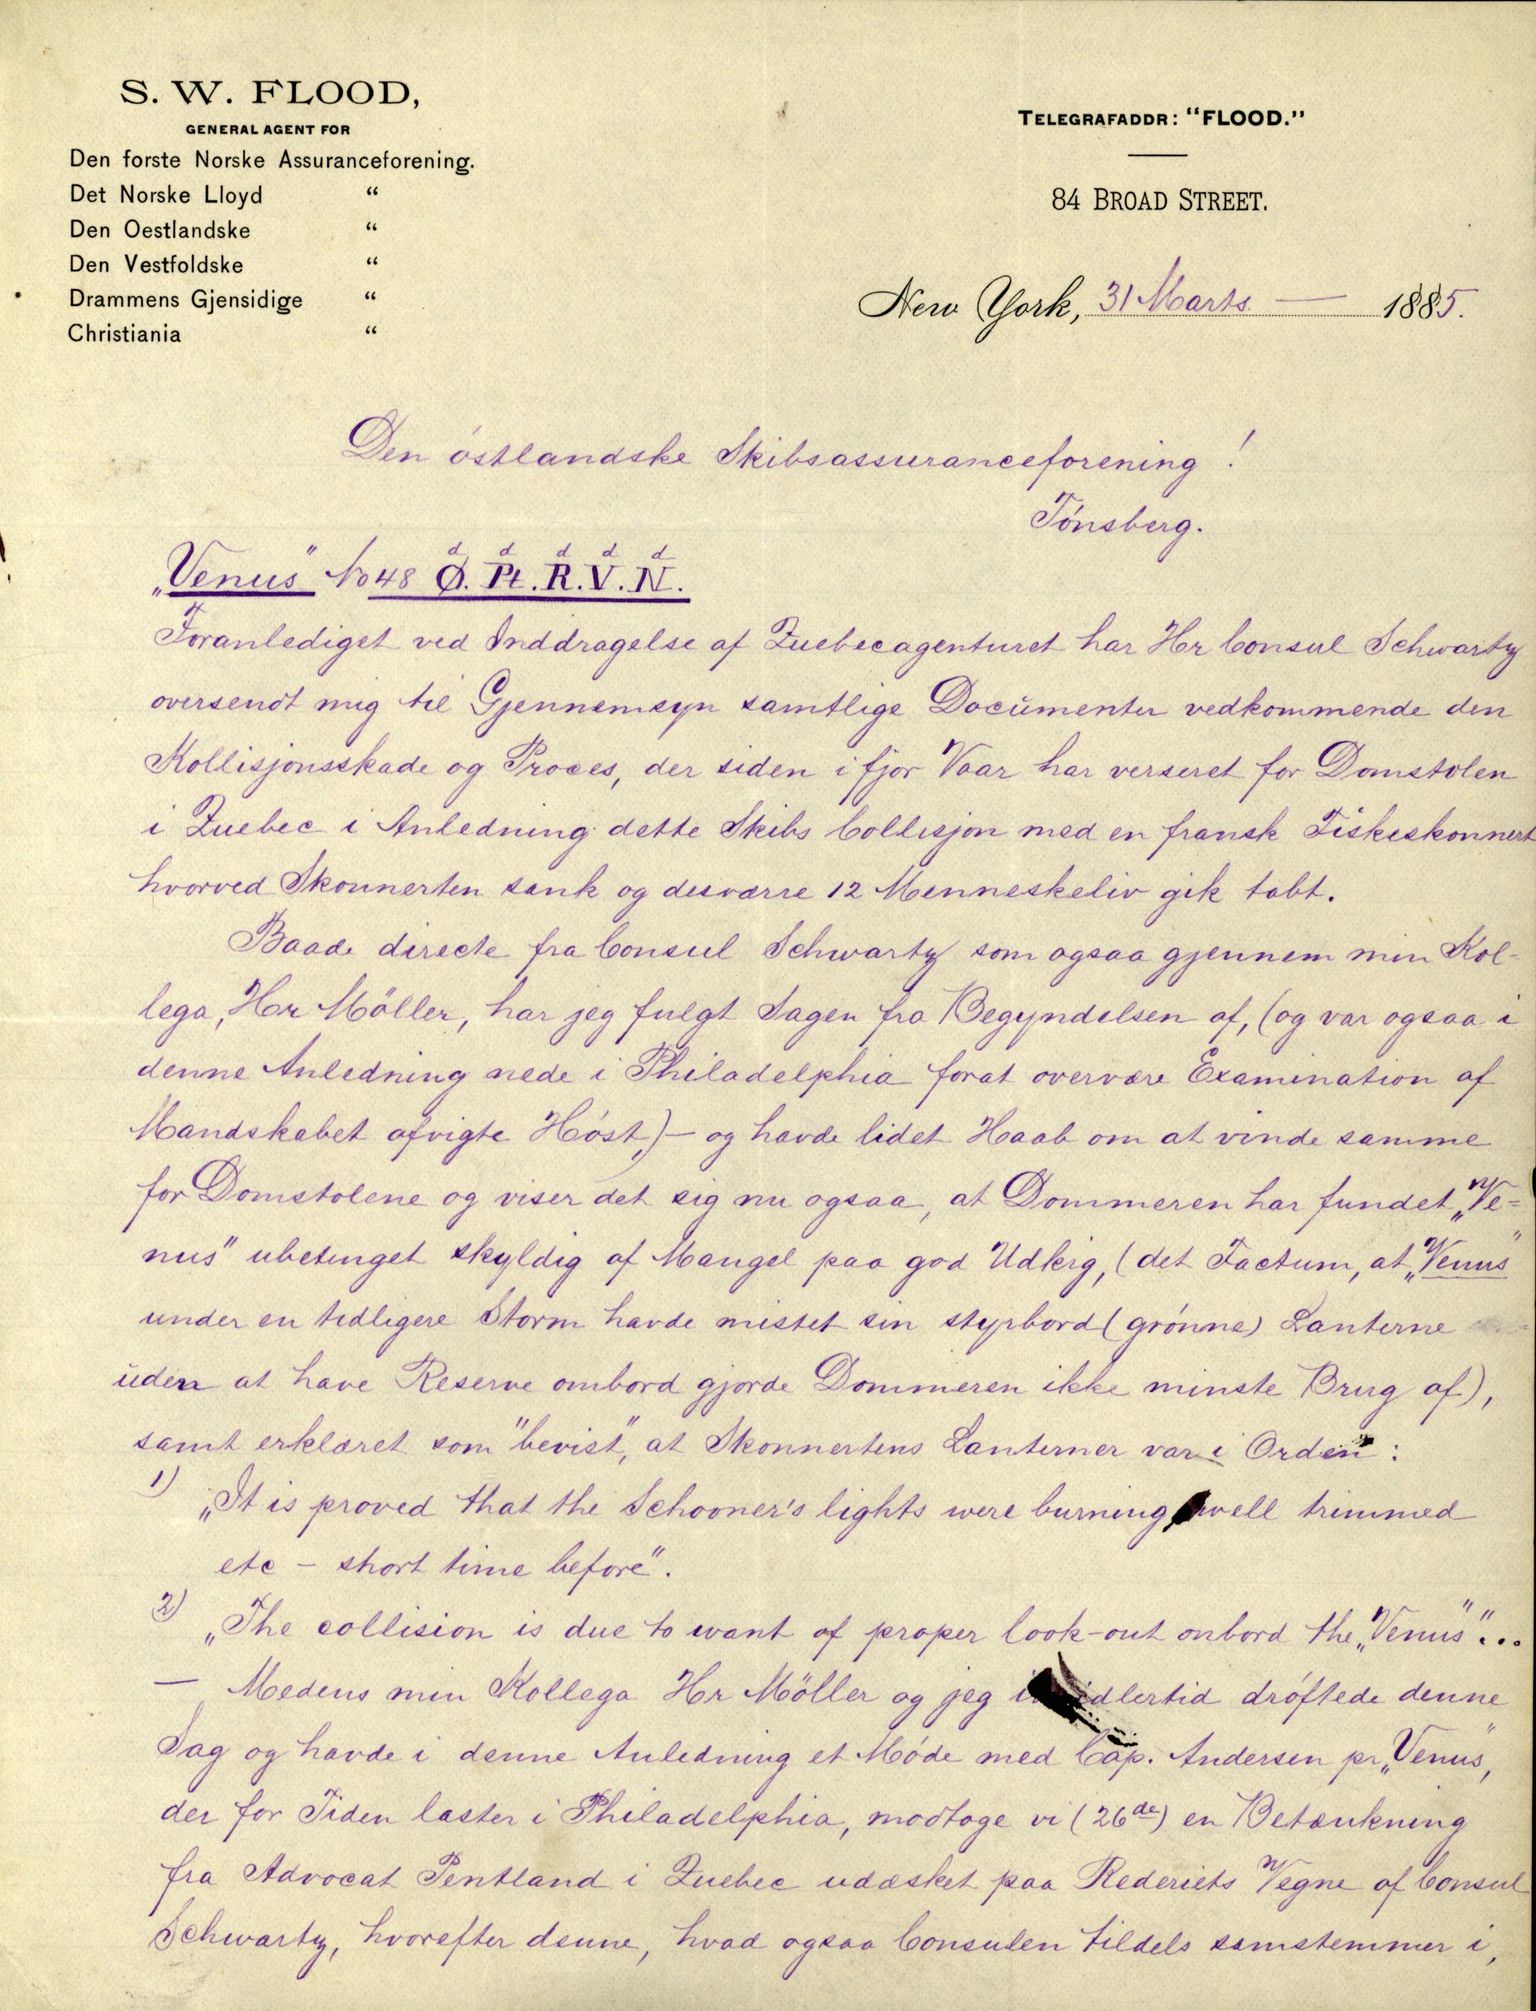 S. W. FLOOD,
GENERAL AGENT FOR
Den forste Norske Assuranceforening.
Det Norske Lloyd “
Den Oestlandske “
Den Vestfoldske “
Drammens Gjensidige “
Christiania “
TELEGRAFADDR: “FLOOD.”
84 BROAD STREET.
New York, 31 Marts — 1885.
Den östlandske Skibsassuranceforening!
Tönsberg.
„Venus” No 48 Ø.d Pt.d R.d V.d N.d
Foranlediget ved Inddragelse af Quebecagenturet har Hr Consul Schwartz
oversendt mig til Gjennemsyn samtlige Documenter vedkommende den
Kollisjonsskade og Proces, der siden i fjor Vaar har verseret for Domstolen
i Quebec i Anledning dette Skibs Collisjon med en fransk Fiskeskonnert
hvorved Skonnerten sank og desværre 12 Menneskeliv gik tabt.
Baade directe fra Consul Schwartz som ogsaa gjennem min Kol-
lega, Hr Möller, har jeg fulgt Sagen fra Begyndelsen af, (og var ogsaa i
denne Anledning nede i Philadelphia forat overvære Examination af
Mandskabet afvigte Höst,) — og havde lidet Haab om at vinde samme
for Domstolene og viser det sig nu ogsaa, at Dommeren har fundet „Ve=
nus” ubetinget skyldig af Mangel paa god Udkig, (det Factum, at „Venus”
under en tidligere Storm havde mistet sin styrbord (grönne) Lanterne
uden at have Reserve ombord gjorde Dommeren ikke minste Brug af),
samt erklæret som "bevist", at Skonnertens Lanterner var i Orden:
1) „It is proved that the Schooner's lights were burning well trimmed
etc – short time before”.
2) „The collision is due to want of proper look-out onbord the „Venus””...
— Medens min Kollega Hr Möller og jeg imidlertid dröftede denne
Sag og havde i denne Anledning et Möde med Cap. Andersen pr „Venus”,
der for Tiden laster i Philadelphia, modtoge vi (26de) en Betænkning
fra Advocat Pentland i Quebec udæsket paa Rederiets Vegne af Consul
Schwartz, hvorefter denne, hvad ogsaa Consulen tildels samstemmer i,